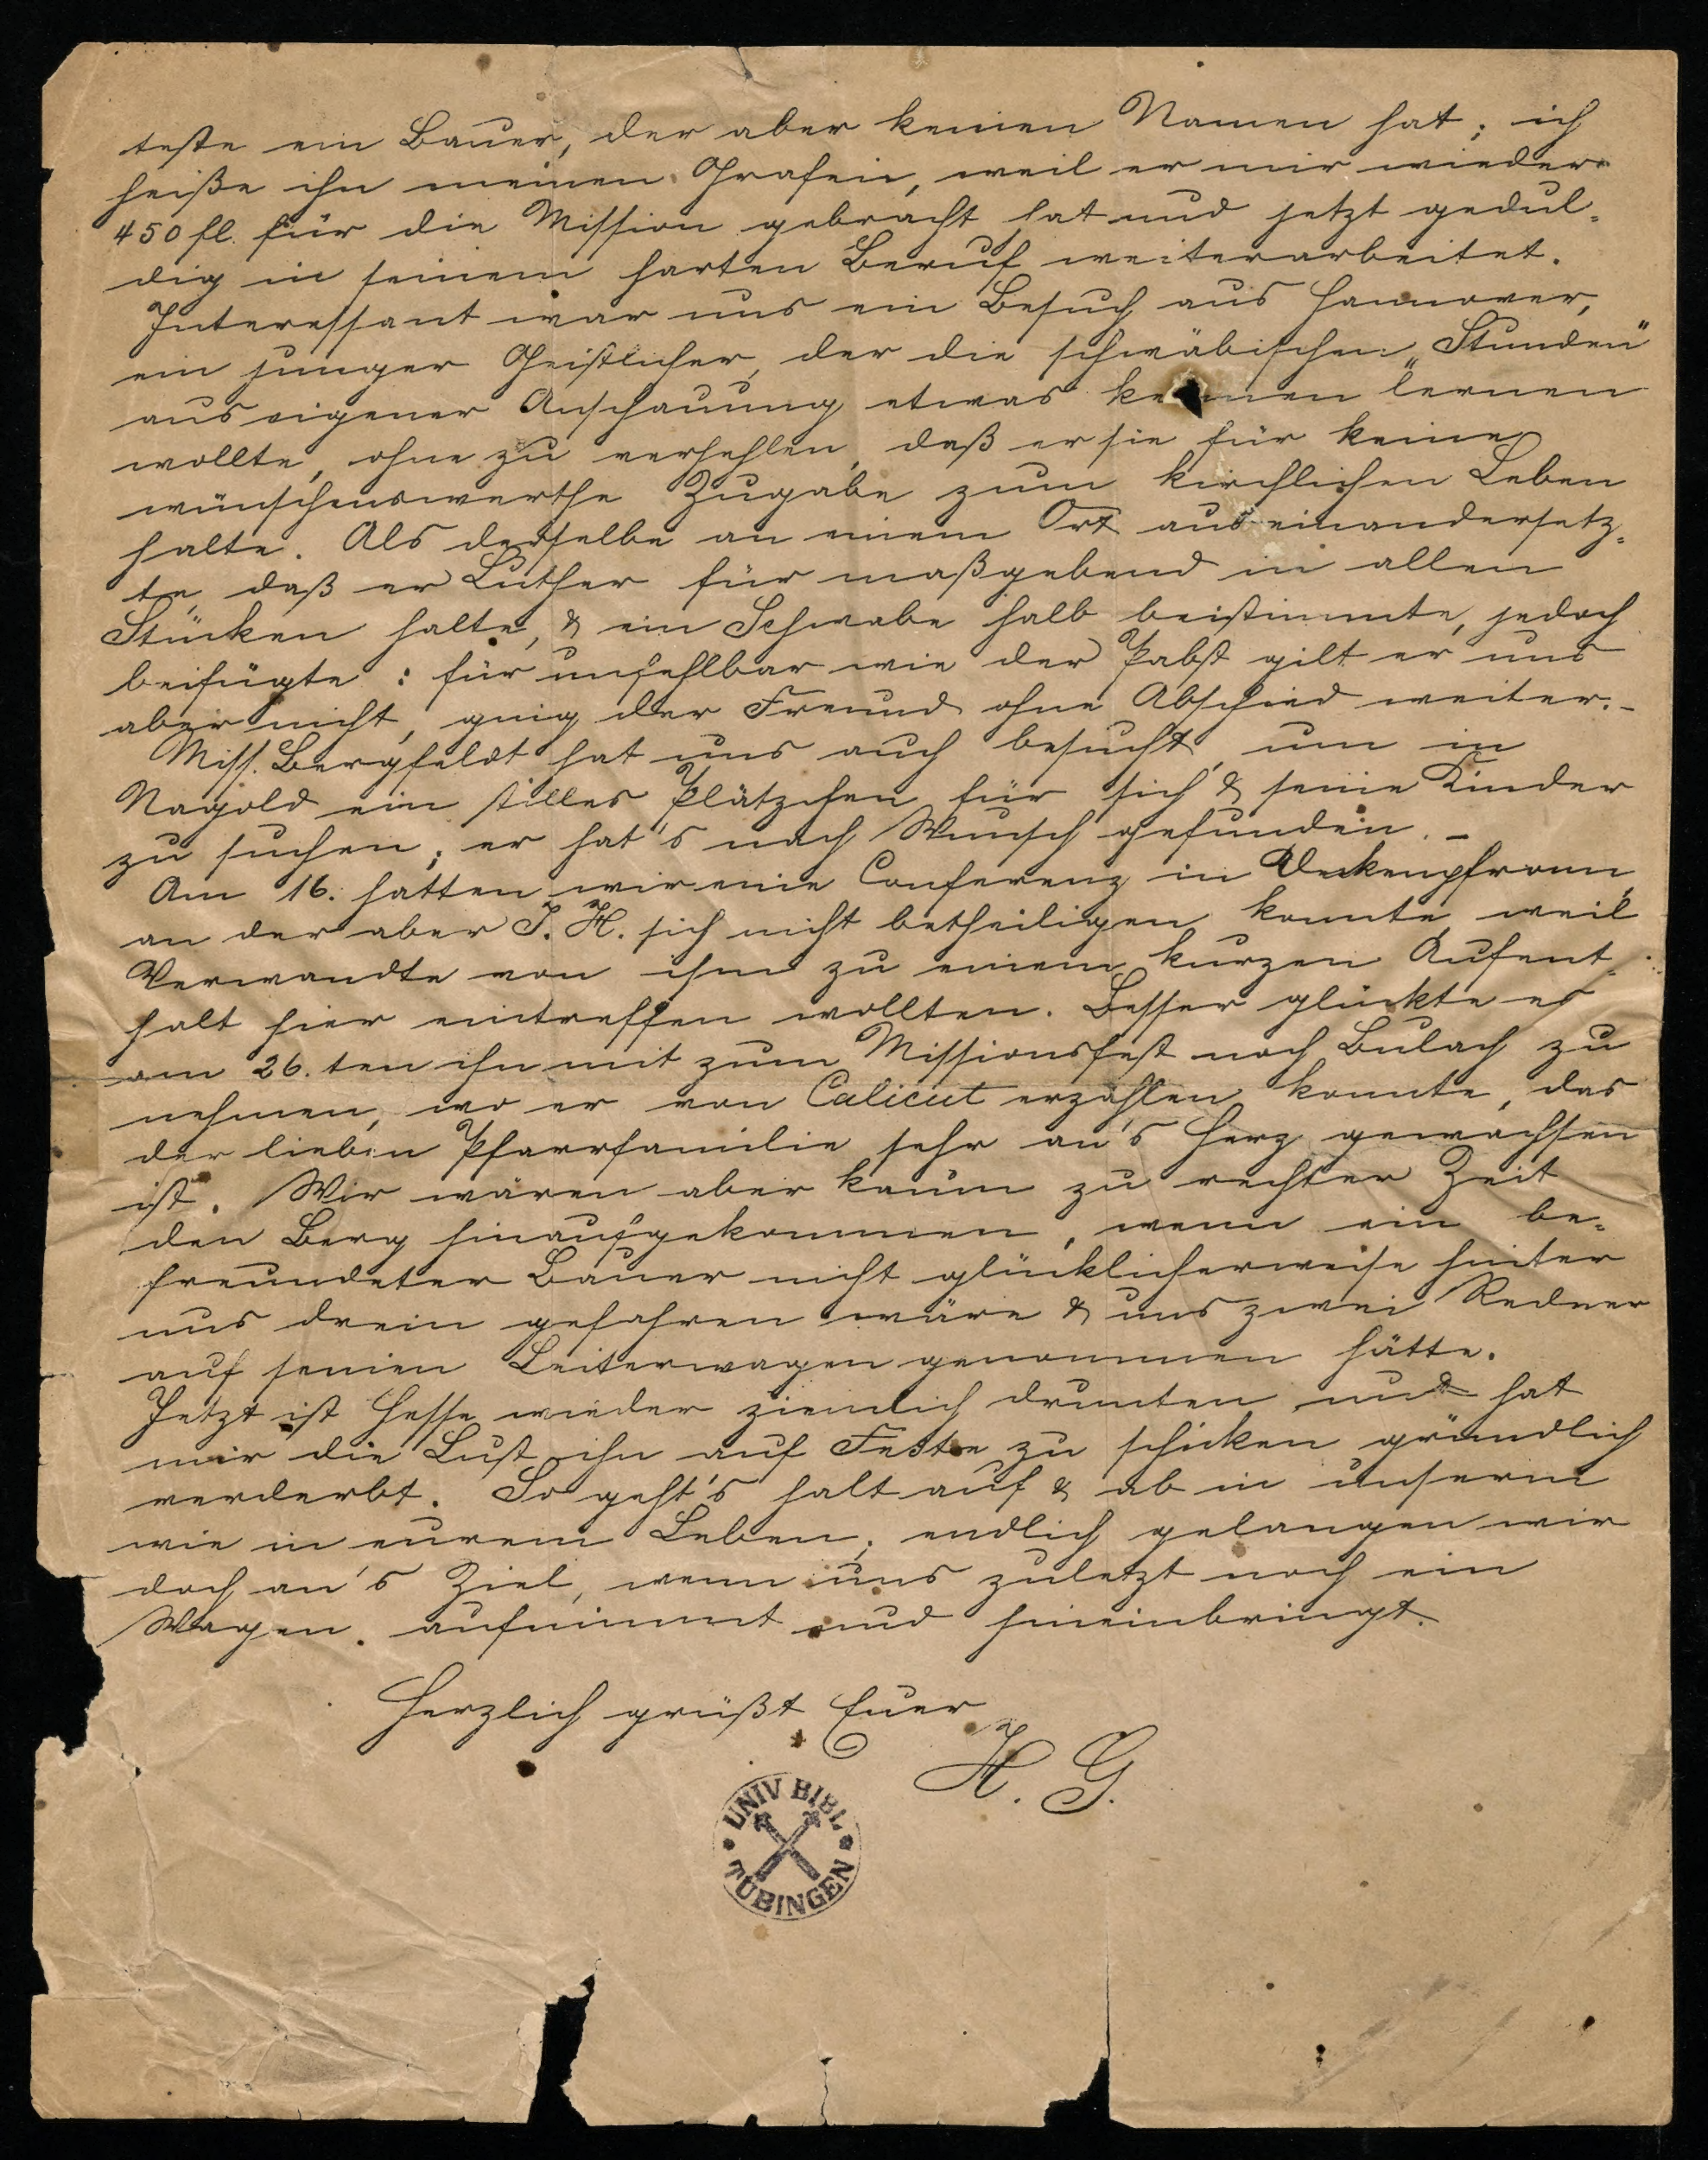 teste ein Bauer, der aber keinen Namen hat; ich
heiße ihn meinen Grafen, weil er mir wieder
450 fl. für die Mission gebracht hat und jetzt gedul-
dig in seinem harten Beruf weiterarbeitet.
Interessant war uns ein Besuch aus Hannover,
ein junger Geistlicher, der die schwäbischen „Stunden"
aus eigener Anschauung etwas kennen lernen
wollte, ohne zu verhehlen, daß er sie für keine
wünschenswerthe Zugabe zum kirchlichen Leben
halte. Als derselbe an einem Ort auseinandersetz-
te, daß er Luther für maßgebend in allen
Stücken halte, & ein Schwabe halb beistimmte, jedoch
beifügte: für unfehlbar wie der Pabst gilt er uns
aber nicht, ging der Freund ohne Abschied weiter. -
Miss. Bergfeldt hat uns auch besucht, um in
Nagold ein stilles Plätzchen für sich & seine Kinder
zu suchen; er hat's nach Wunsch gefunden. -
Am 16. hatten wir eine Conferenz in Deckenpfronn,
an der aber J. H. sich nicht betheiligen konnte, weil
Verwandte von ihm zu einem kurzen Aufent-
halt hier eintreffen wollten. Besser glückte es
am 26.ten ihn mit zum Missionsfest nach Bulach zu
nehmen, wo er von Calicut erzählen konnte, das
der lieben Pfarrfamilie sehr an's Herz gewachsen
ist. Wir wären aber kaum zu rechter Zeit
den Berg hinaufgekommen, wenn ein be-
freundeter Bauer nicht glücklicherweise hinter
uns drein gefahren wäre & uns zwei Redner
auf seinen Leiterwagen genommen hätte.
Jetzt ist Hesse wieder ziemlich drunten und hat
mir die Lust ihn auf Feste zu schicken gründlich
verderbt. So geht's halt auf & ab in unserm
wie in eurem Leben; endlich gelangen wir
doch an's Ziel, wenn uns zuletzt noch ein
Wagen aufnimmt und hineinbringt.
Herzlich grüßt Euer
H. G.
UNIV BIBL
TÜBINGEN